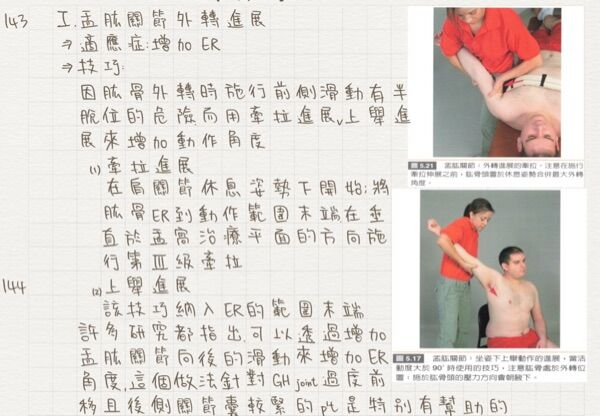 143 I. 盂肱關節外轉進展
⇒ 適應症:增加 ER
⇒ 技巧:
因肱骨外轉時施行前側滑動有半
脫位的危險而用牽拉進展、上舉進
展來增加動作角度
(1) 牽拉進展
在肩關節休息姿勢下開始,將
肱骨ER到動作範圍末端在垂
直於盂窩治療平面的方向施
行第Ⅲ級牽拉
144 (2) 上舉進展
該技巧納入ER的範圍末端
許多研究都指出,可以透過增加
盂肱關節向後的滑動來增加ER
角度,這個做法針對GH joint過度前
移且後側關節囊較緊的pt是特別有幫助的
圖 5.21 盂肱關節,外轉進展的牽拉。注意在施行
牽拉伸展之前,肱骨頭置於休息姿勢合併最大外轉
角度。
圖 5.17 盂肱關節,坐姿下上舉動作的進展,當活
動度大於 90° 時使用的技巧。注意肱骨處於外轉位
置。施於肱骨頭的壓力方向會朝腋下。